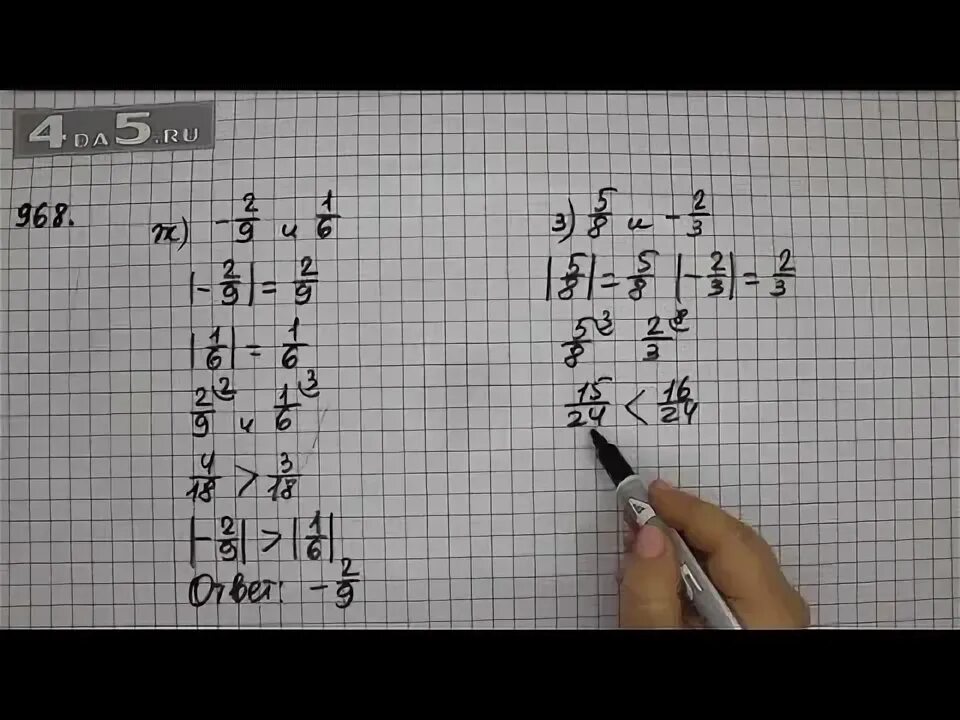 4DA5.RU
968.
ж) -2/9 и 1/6
|-2/9| = 2/9
|1/6| = 1/6
2/9 2 и 1/6 3
4/18 > 3/18
|-2/9| > |1/6|
Ответ: -2/9
з) 5/8 и -2/3
|5/8| = 5/8 |-2/3| = 2/3
5/8 3 2/3 8
15/24 < 16/24